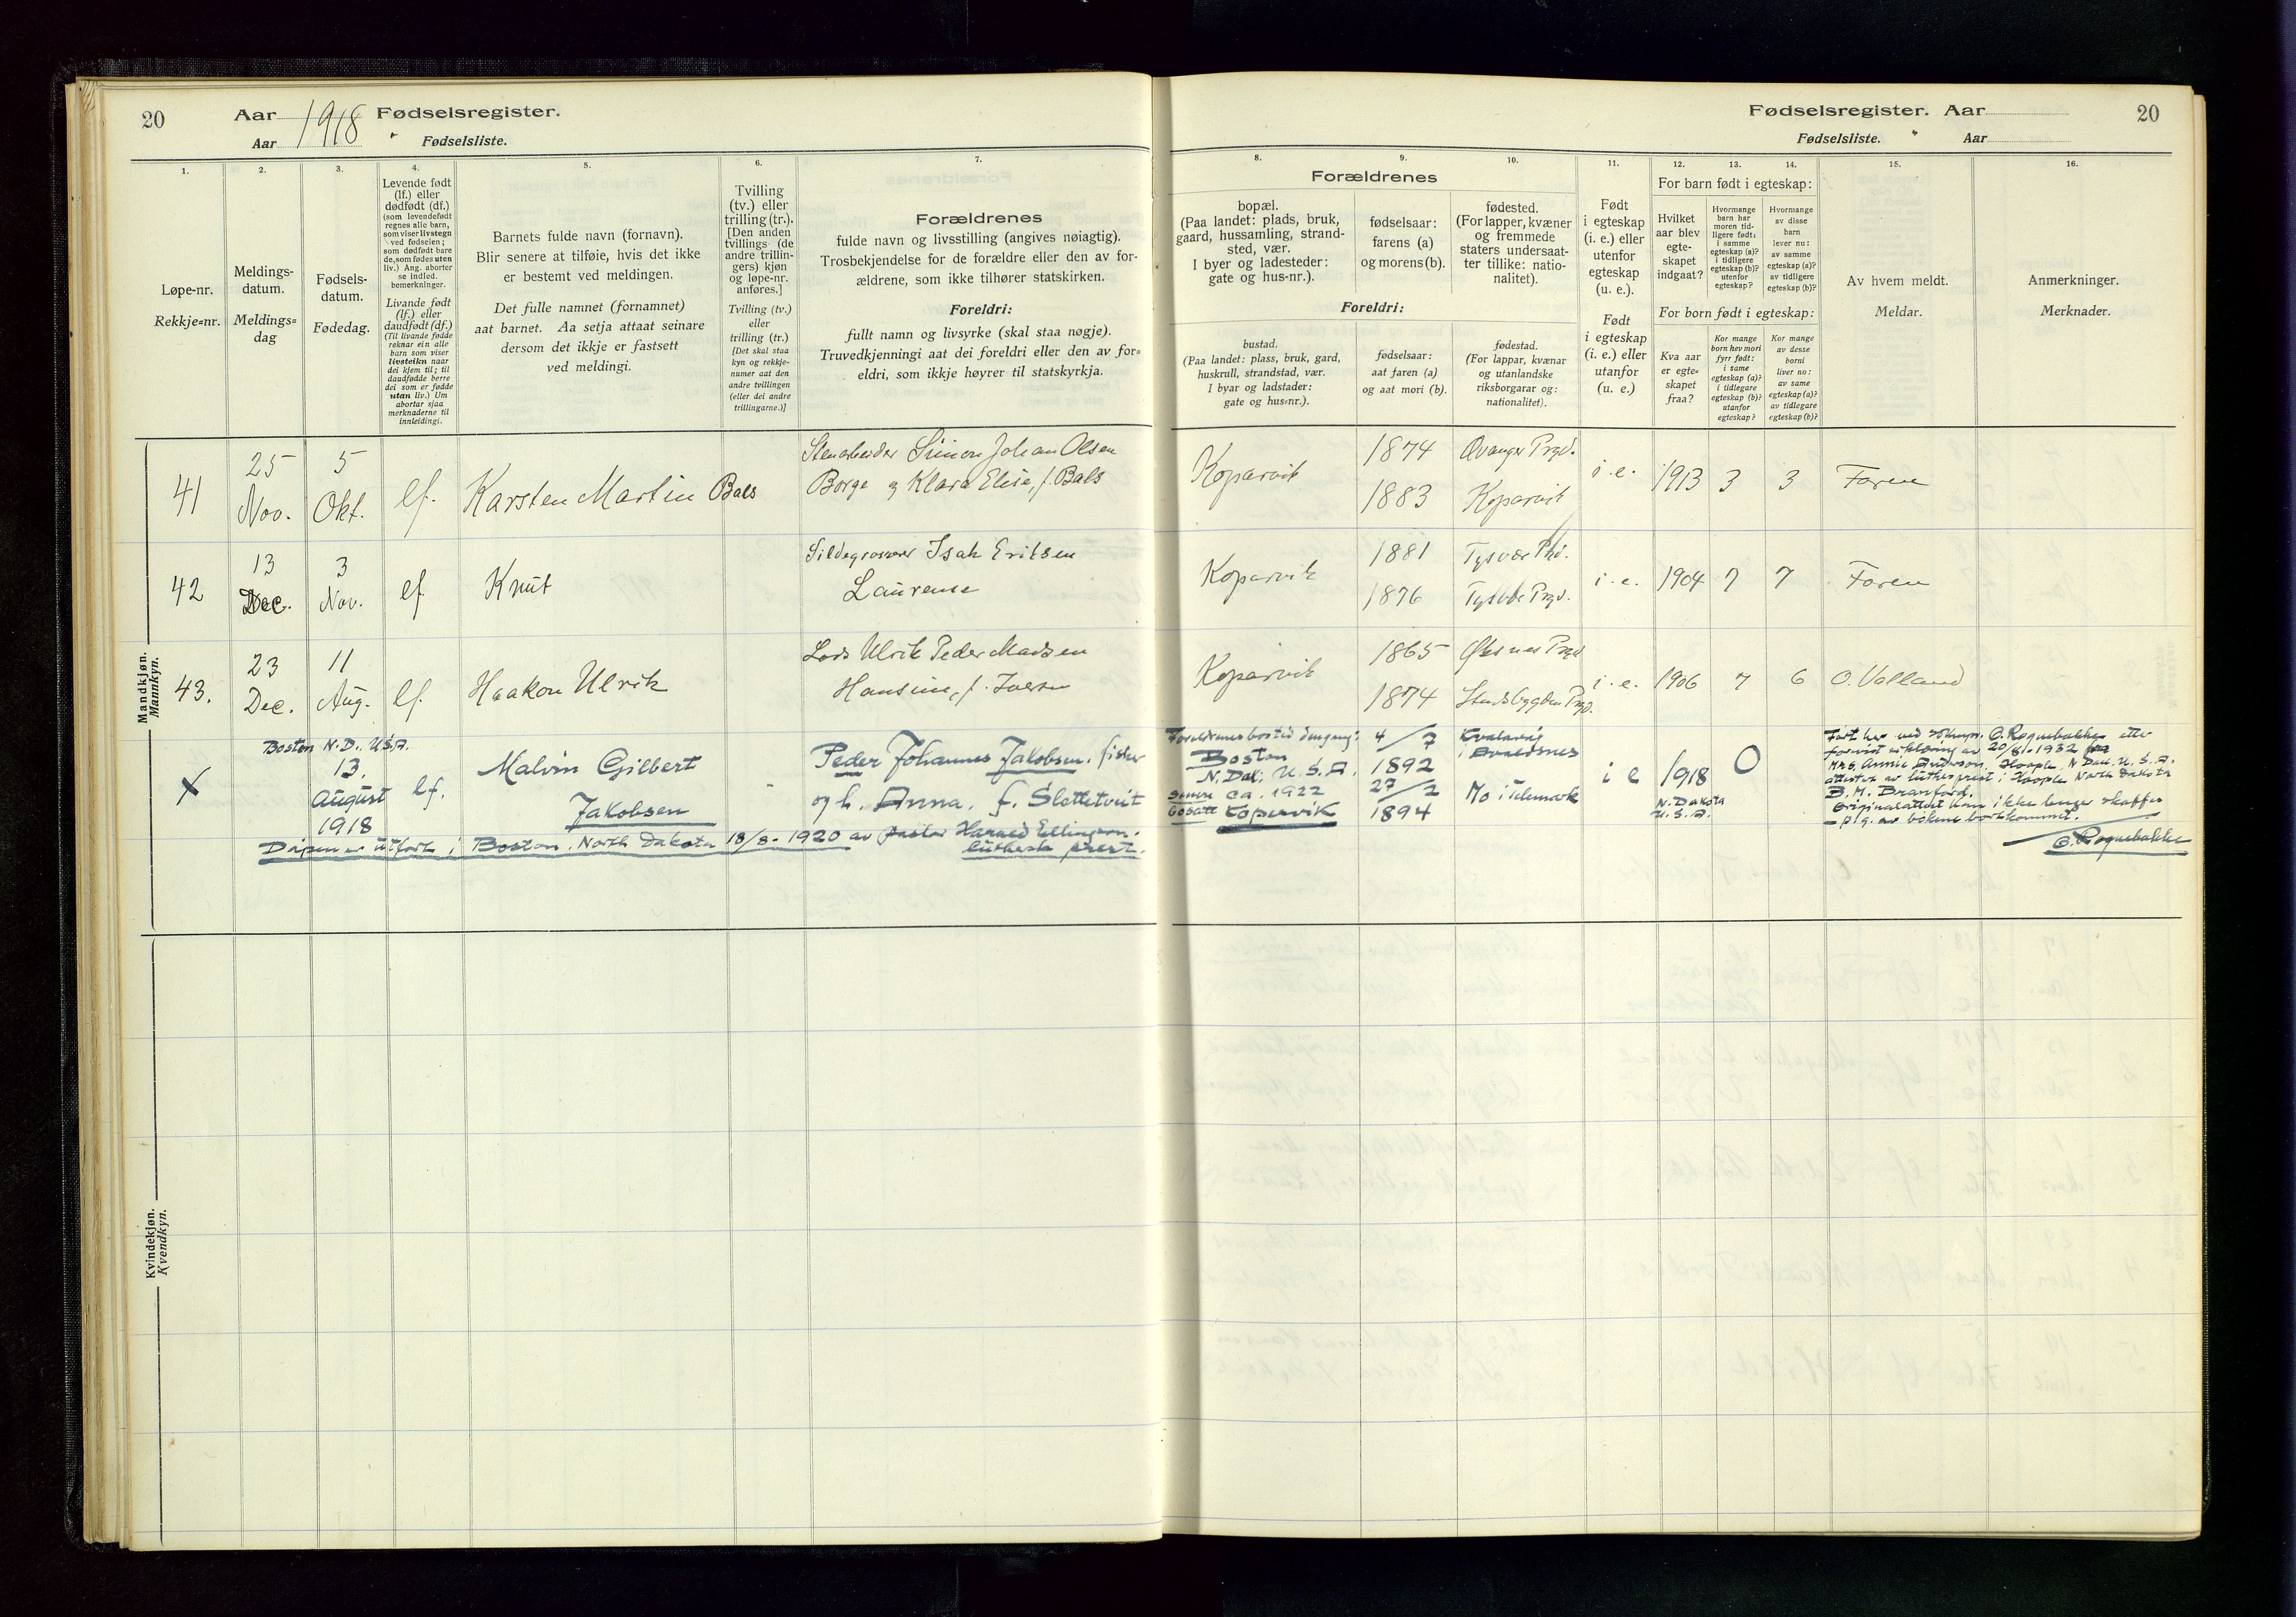 20
Aar 1918 Fødselsregister.
Aar Fødselsliste.
Fødselsregister. Aar
Fødselsliste. Aar
20
1.
Løpe-nr.
Rekkje=nr.
2.
Meldings-
datum.
Meldings=
dag
3.
Fødsels-
datum.
Fødedag.
4.
Levende født
(lf.) eller
dødfødt (df.)
(som levendefødt
regnes alle barn,
som viser livstegn
ved fødselen;
som dødfødt bare
de, som fødes uten
liv.) Ang. aborter
se indled.
bemerkninger.
Livande født
(lf.) eller
daudfødt (df.)
(Til livande fødde
reknar ein alle
barn som viser
livsteikn naar
dei kjem til; til
daudfødde berre
dei som er fødde
utan liv.) Um
abortar sjaa
merknaderne til
innleidingi.
5.
Barnets fulde navn (fornavn).
Blir senere at tilføie, hvis det ikke
er bestemt ved meldingen.
Det fulle namnet (fornamnet)
aat barnet. Aa setja attaat seinare
dersom det ikkje er fastsett
ved meldingi.
6.
Tvilling
(tv.) eller
trilling (tr.).
[Den anden
tvillings (de
andre trillin-
gers) kjøn
og løpe-nr.
anføres.]
Tvilling (tv.)
eller
trilling (tr.)
[Det skal staa
kyn og rekkje-
numer aat den
andre tvillingen
(eller dei andre
trillingarne.)]
7.
Forældrenes
fulde navn og livsstilling (angives nøiagtig).
Trosbekjendelse for de forældre eller den av for-
ældrene, som ikke tilhører statskirken.
Foreldri:
fullt namn og livsyrke (skal staa nøgje).
Truvedkjenningi aat dei foreldri eller den av for=
eldri, som ikkje høyrer til statskyrkja.
8.
9.
10.
Forældrenes
bopæl.
(Paa landet: plads, bruk,
gaard, hussamling, strand-
sted, vær.
I byer og ladesteder:
gate og hus-nr.).
fødselsaar:
farens (a)
og morens (b).
fødested.
(For lapper, kvæner
og fremmede
staters undersaat-
ter tillike: natio-
nalitet).
Foreldri:
bustad.
(Paa landet: plass, bruk, gard,
huskrull, strandstad, vær.
I byar og ladstader:
gate og hus=nr.).
fødselsaar:
aat faren (a)
og aat mori (b).
fødestad.
(For lappar, kvænar
og utanlandske
riksborgarar og:
nationalitet).
11.
Født
i egteskap
(i. e.) eller
utenfor
egteskap
(u. e.).
Født
i egteskap
(i. e.) eller
utanfor
(u. e.)
12.
13.
14.
For barn født i egteskap:
Hvilket
aar blev
egte-
skapet
indgaat?
Hvormange
barn har
moren tid-
ligere født:
i samme
egteskap (a)?
i tidligere
egteskap (b)?
utenfor
egteskap?
Hvormange
av disse
barn
lever nu:
av samme
egteskap (a)?
av tidligere
egteskap (b)?
For born født i egteskap:
Kva aar
er egte-
skapet
fraa?
Kor mange
born hev mori
fyrr født:
i same
egteskap (a)?
i tidlegare
egteskap (b)?
utanfor
egteskap?
Kor mange
av desse
borni
liver no:
av same
egteskap (a)?
av tidlegare
egteskap (b)?
15.
Av hvem meldt.
Meldar.
16.
Anmerkninger.
Merknader.
Mandkjøn.
Mannkyn.
41
25
Nov.
5
Okt.
lf.
Karsten Martin Bals
Stenarbeider Simon Johan Olsen
Borge og Klara Elise, f. Bals
Kopervik
1874
1883
Kopervik
i. e.
1913 3 3
Faren
42
13
Dec.
3
Nov.
lf
Knut
Isak Eriksen
Laurense
Kopervik
1881
1876
Tysvær
i. e.
1904 7 7
Faren
43.
23
Dec.
11
Aug.
lf.
Haakon Ulrik
Lods Ulrik Peder Madsen
Hansine, f. Iversen
Kopervik
1865
1874
Øksnes Prgd
Stadsbygden Prgd.
i. e.
1906 7 6
O. Valland
X
Boston N.D., U.S.A.
13.
August
1918
lf.
Malvin Gilbert
Jakobsen
-
Peder Johannes Jakobsen, fisker
og h. Anna, f. Slettetveit
Foreldrenes bosted dengang:
Boston
N. Dak; U.S.A.
senere ca. 1922
bosatt Kopervik
4/7
1892
27/2
1894
Kvalavåg
i Avaldsnes
Mo i Telemark
i e
1918
N. Dakota
U.S.A.
0
Ført her ved soknepr. O. Roquebakke etter
forevist erklæring av 20/8-1932 fra
Mrs. Annie Anderson, Hoople, N. Dak. U.S.A.
attestert av luthersk prest i Hoople North Dakota
B. M. Branford.
Originalattest kan ikke lenger skaffes
- p.g. av bøkene bortkommet.
O. Roquebakke
Dåpen er utført i Boston, North Dakota 18/8-1920 av pastor Harald Ellingson.
luthersk prest.
Kvindekjøn.
Kvendkyn.